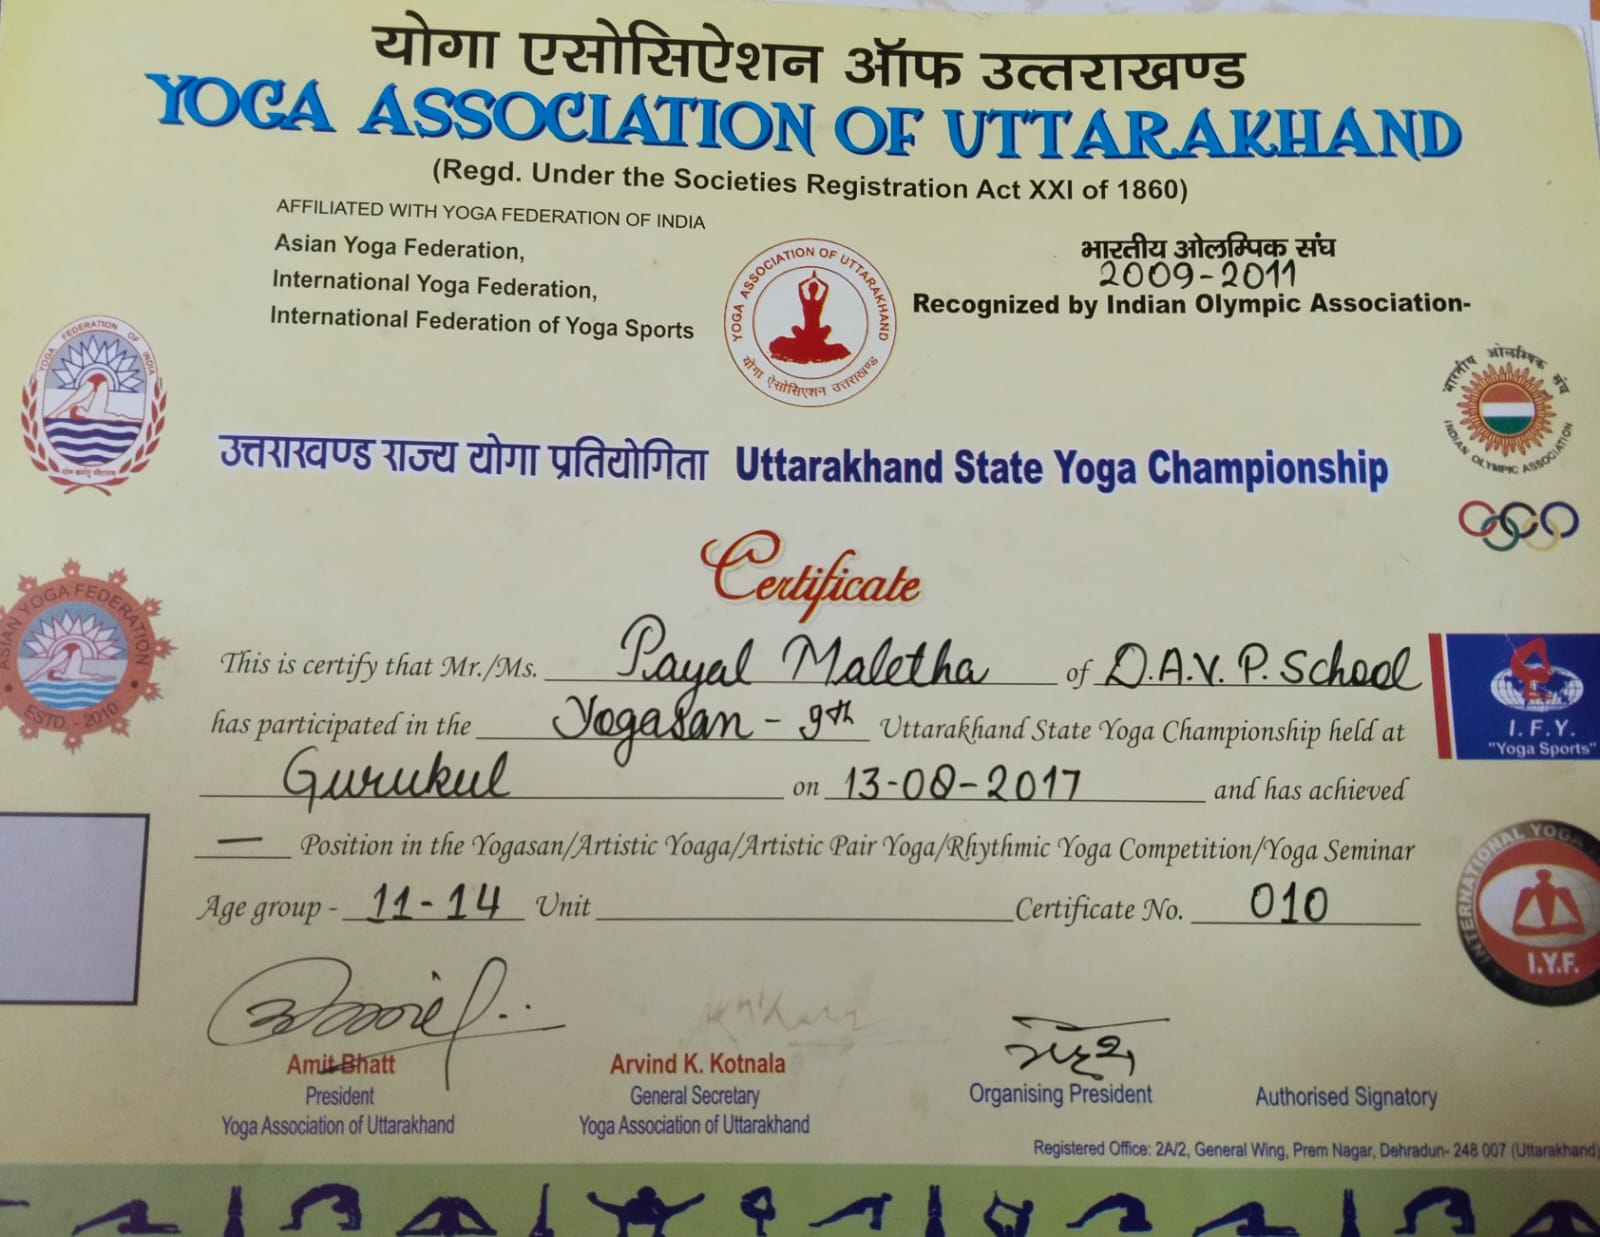 योगा एसोसिऐशन ऑफ उत्तराखण्ड
YOGA ASSOCIATION OF UTTARAKHAND
(Regd. Under the Societies Registration Act XXI of 1860)
AFFILIATED WITH YOGA FEDERATION OF INDIA
Asian Yoga Federation,
International Yoga Federation,
International Federation of Yoga Sports
YOGA ASSOCIATION OF UTTARAKHAND
योगा ऐसोसिएशन उत्तराखण्ड
भारतीय ओलम्पिक संघ
2009-2011
Recognized by Indian Olympic Association-
YOGA FEDERATION OF INDIA
भारतीय ओलम्पिक संघ
INDIAN OLYMPIC ASSOCIATION
उत्तराखण्ड राज्य योगा प्रतियोगिता Uttarakhand State Yoga Championship
Certificate
ASIAN YOGA FEDERATION
ESTD. - 2010
This is certify that Mr./Ms. Payal Maletha of D.A.V. P. School
has participated in the Yogasan - 9th Uttarakhand State Yoga Championship held at
Gurukul on 13-08-2017 and has achieved
— Position in the Yogasan/Artistic Yoaga/Artistic Pair Yoga/Rhythmic Yoga Competition/Yoga Seminar
Age group - 11-14 Unit Certificate No. 010
I.F.Y.
"Yoga Sports"
INTERNATIONAL YOGA
I.Y.F.
MEMBER
Amit Bhatt
President
Yoga Association of Uttarakhand
Arvind K. Kotnala
General Secretary
Yoga Association of Uttarakhand
Organising President
Authorised Signatory
Registered Office: 2A/2, General Wing, Prem Nagar, Dehradun- 248 007 (Uttarakhand)